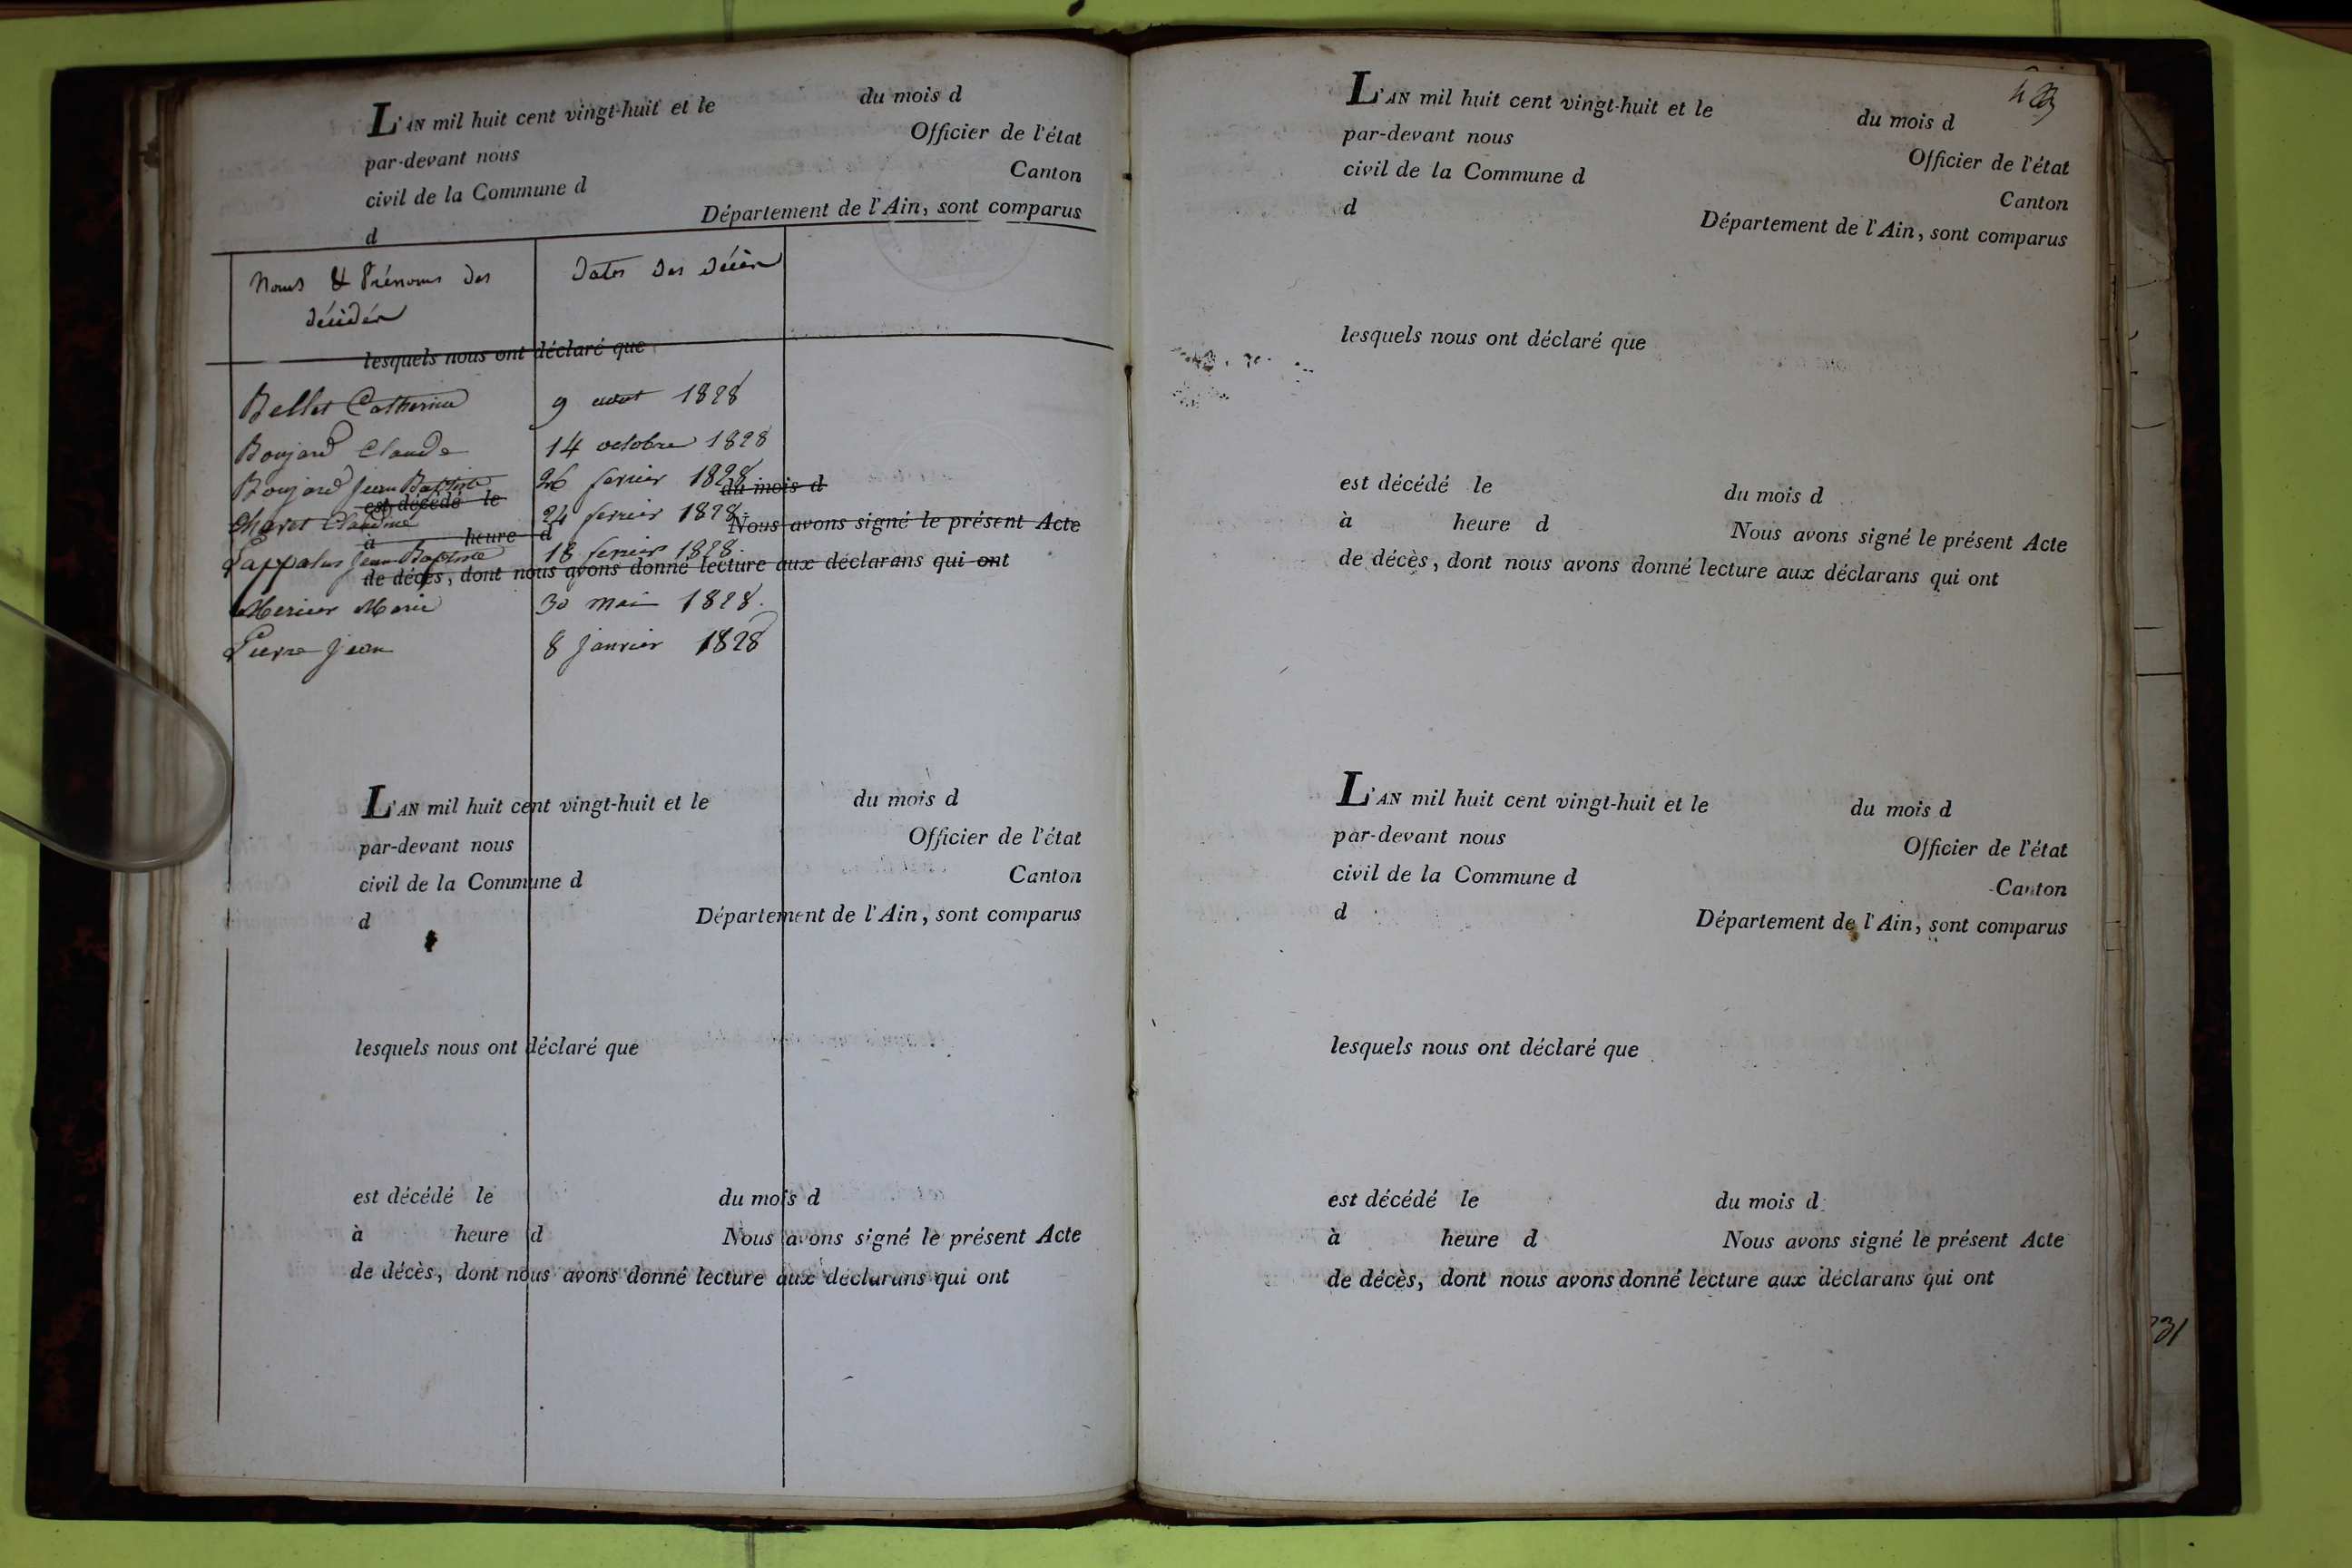 L'AN mil huit cent vingt-huit et le du mois d
par-devant nous Officier de l'état
civil de la Commune d Canton
d Département de l'Ain, sont comparus
Noms & Prénoms des décédés
Dates des décès
lesquels nous ont déclaré que
Bellet Catherine 9 aout 1828
Boujard Claude 14 octobre 1828
Boujard Jean Baptiste 26 fevrier 1828
est décédé le du mois d
Charet Claudine 24 fevrier 1828.
à heure d Nous avons signé le présent Acte
Lappalus Jean Baptiste 18 fevrier 1828.
de décès, dont nous avons donné lecture aux déclarans qui ont
Mercier Marie 30 mai 1828.
Pierre Jean 8 janvier 1828
L'AN mil huit cent vingt-huit et le du mois d
par-devant nous Officier de l'état
civil de la Commune d Canton
d Département de l'Ain, sont comparus
lesquels nous ont déclaré que
est décédé le du mois d
à heure d Nous avons signé le présent Acte
de décès, dont nous avons donné lecture aux déclarans qui ont
L'AN mil huit cent vingt-huit et le du mois d
par-devant nous Officier de l'état
civil de la Commune d Canton
d Département de l'Ain, sont comparus
lesquels nous ont déclaré que
est décédé le du mois d
à heure d Nous avons signé le présent Acte
de décès, dont nous avons donné lecture aux déclarans qui ont
L'AN mil huit cent vingt-huit et le du mois d
par-devant nous Officier de l'état
civil de la Commune d Canton
d Département de l'Ain, sont comparus
lesquels nous ont déclaré que
est décédé le du mois d
à heure d Nous avons signé le présent Acte
de décès, dont nous avons donné lecture aux déclarans qui ont
31